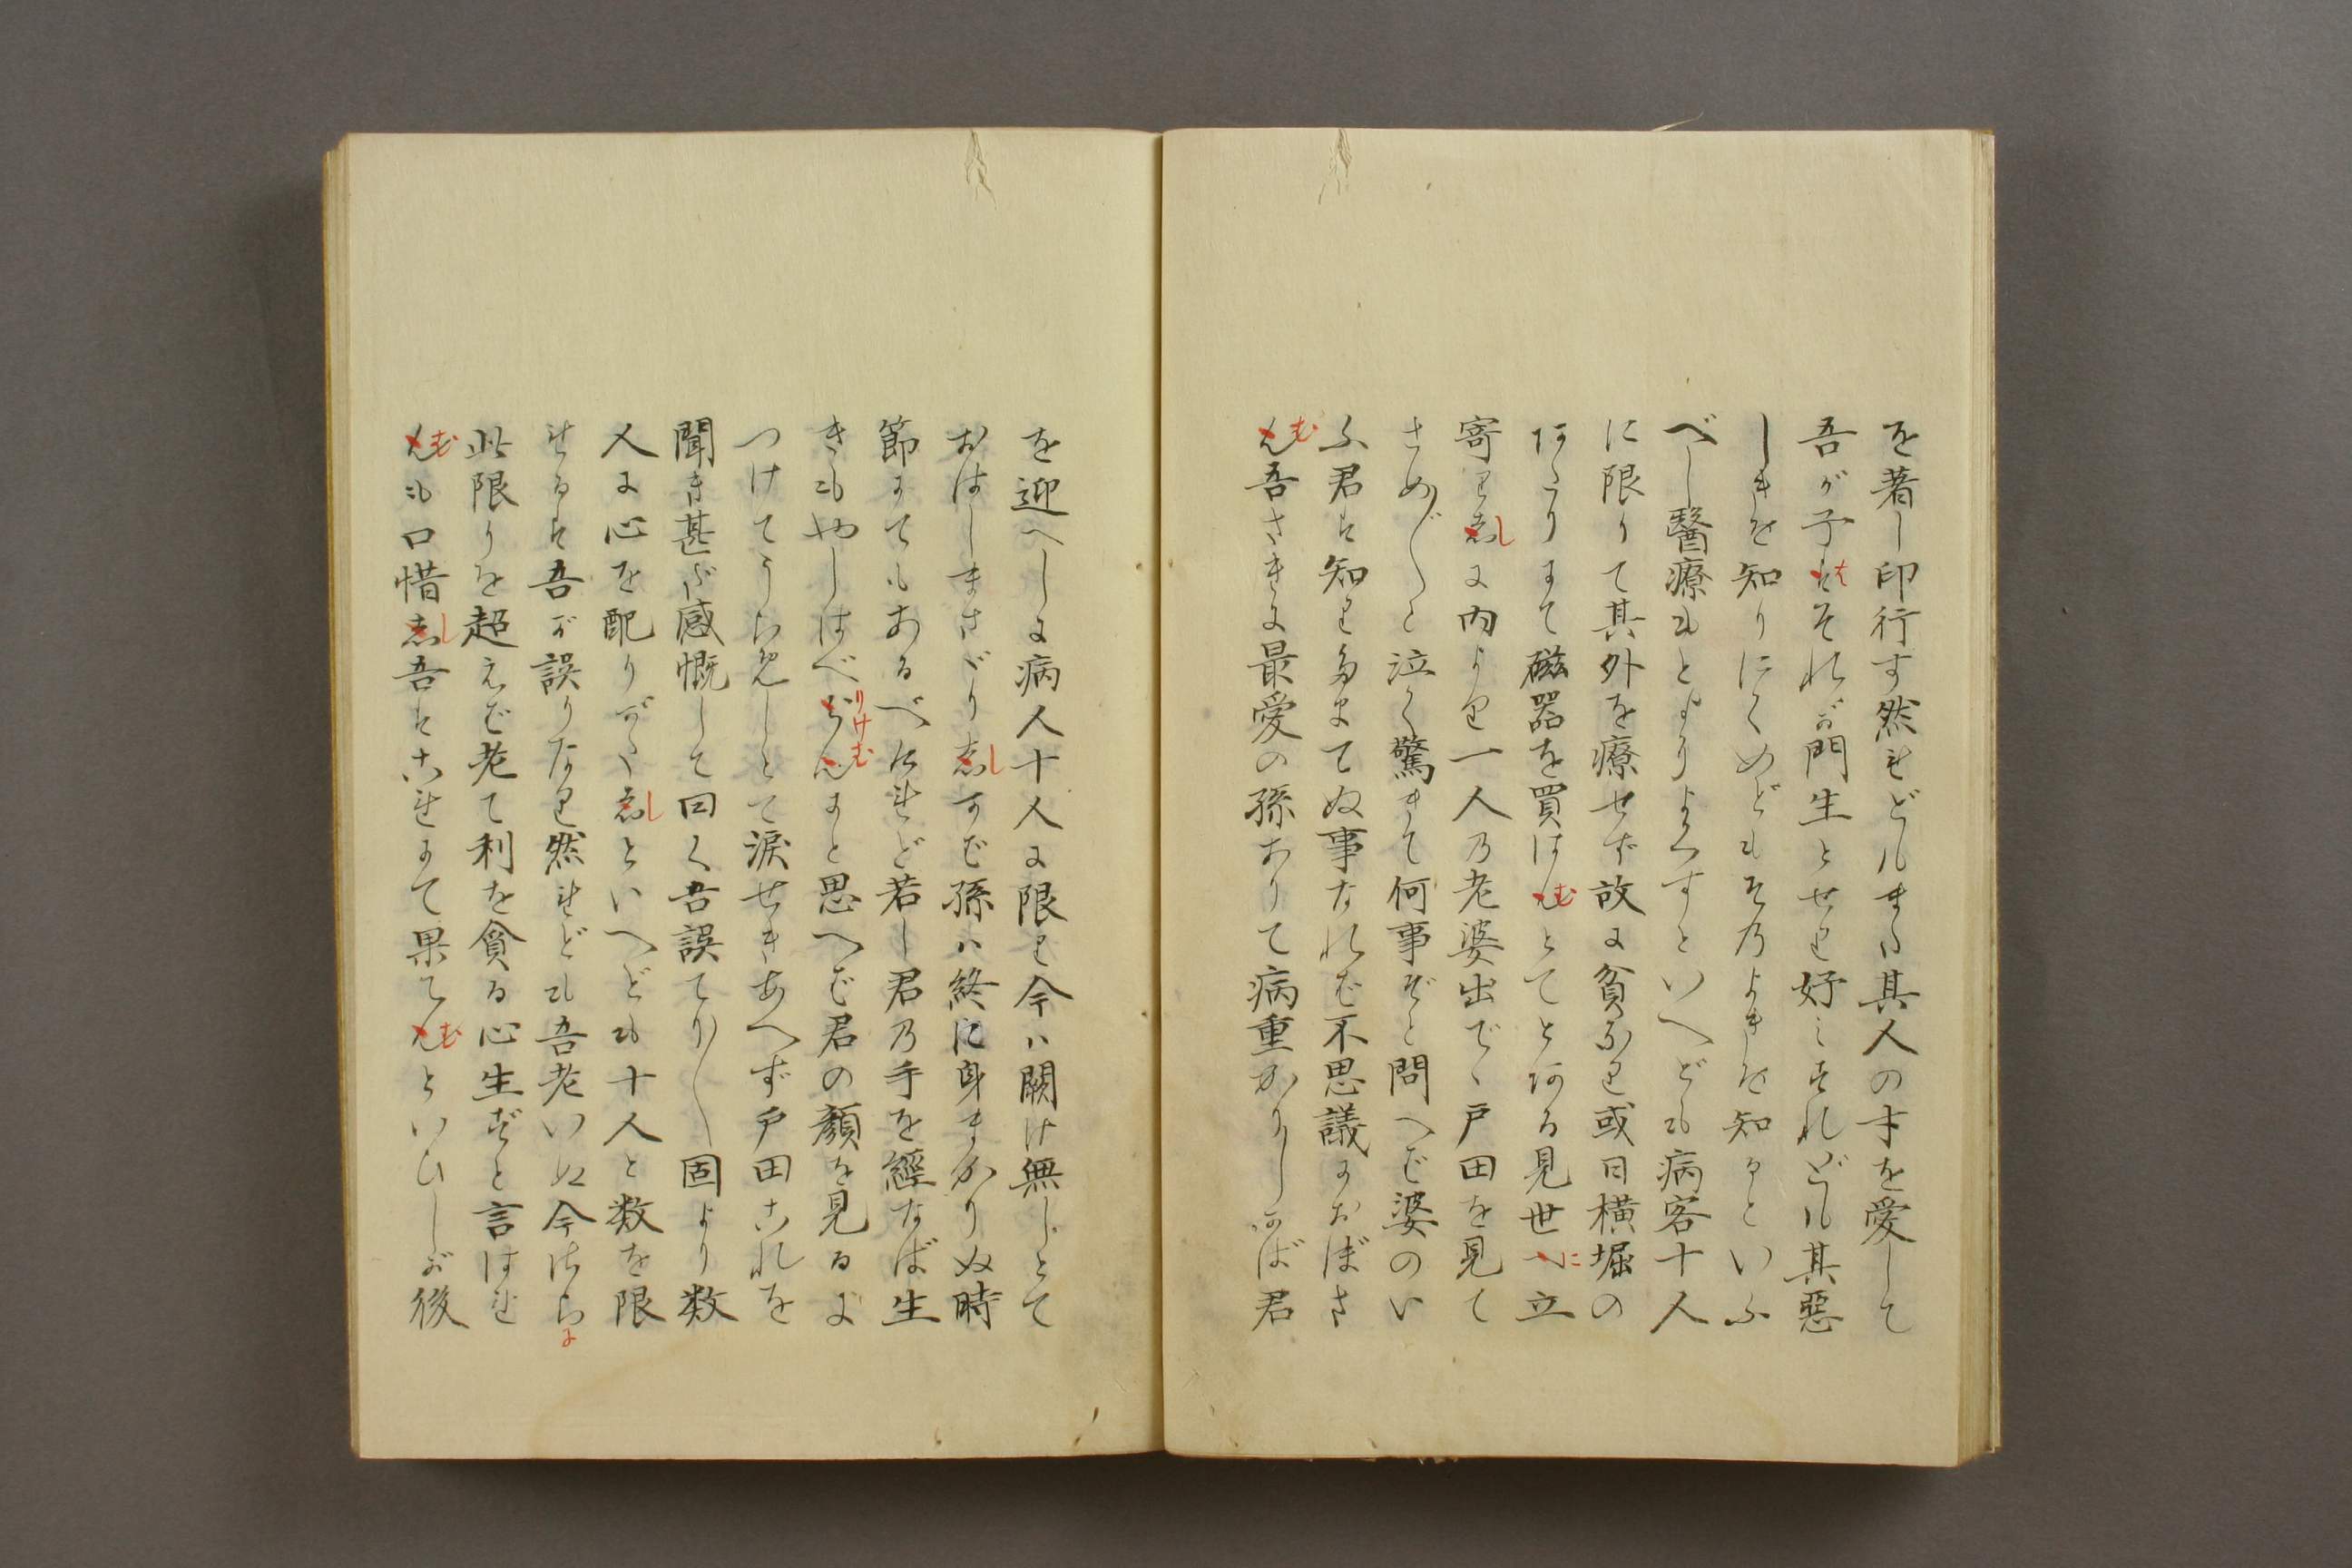 を著し印行す然れども其人の才を愛して
吾が子はそれが門生とせり好みすれども其惡
しきを知りにくめどもその乃よきを知るといふ
べし醫療もとよりよくすといへども病客十人
に限りて其外を療せず故に貧なり或日横堀の
ほとりにて磁器を買はむとてとある見世に立
寄りしに内より一人の老婆出で戸田を見て
さめ〴〵と泣く驚きて何事ぞと問へば婆のい
ふ君は知り給はぬ事なれば不思議におぼさ
む吾さきに最愛の孫ありて病重かりしかば君
を迎へしに病人十人に限り今は闕け無しとて
おはしまさゞりしすゞ孫ハ終に身まかりぬ時
節にてもあるべけれど若し君の手を經なば生
きもやしはべりけむにと思へば君の顔を見るに
つけてうらめしとて涙せきあへず戸田これを
聞き甚だ感慨して曰く吾誤てり〳〵固より数
人に心を配りがたしといへども十人と数を限
れるは吾が誤りなり然れども吾老いぬ今さらに
此限りを超えば老て利を貪る心生ずと言はれ
むも口惜し吾はこれにて果てむといひしが後